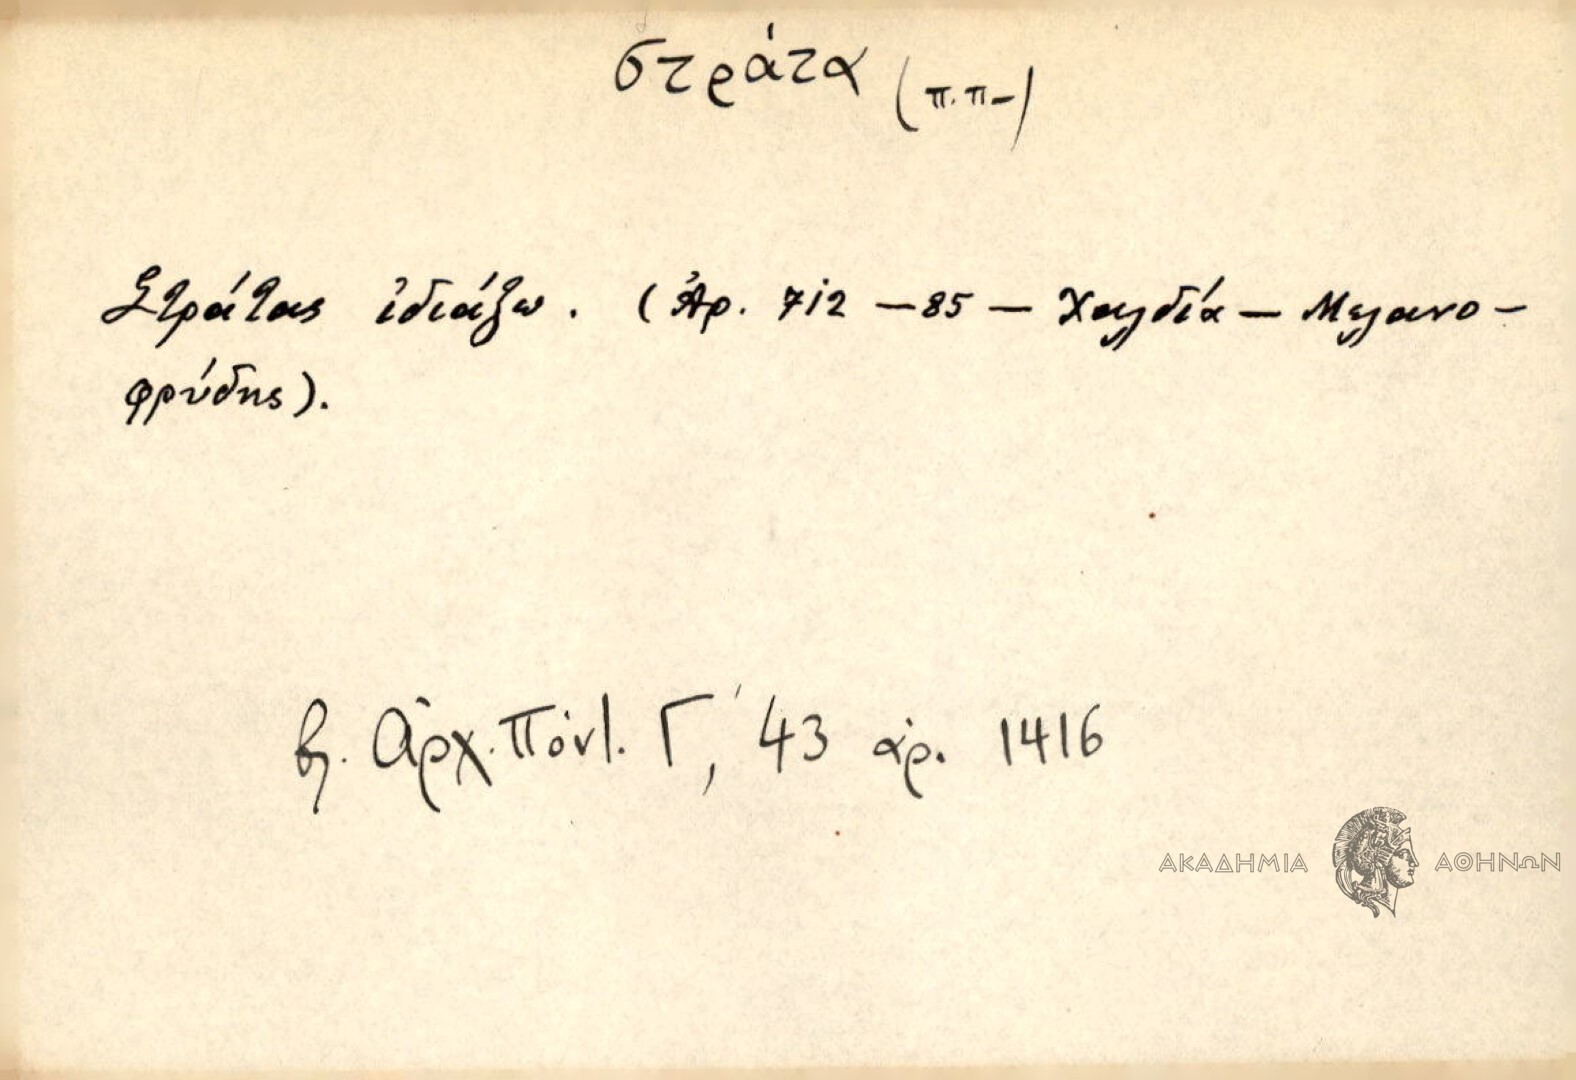 στράτα (π.π-)
Στράτας ἰδιάζω. (Ἀρ. 712 – 85 – Χαλδία – Μελανο-
φρύδης).
βλ. Ἀρχ. Πόντ. Γ΄, 43 ἀρ. 1416
ΑΚΑΔΗΜΙΑ ΑΘΗΝΩΝ